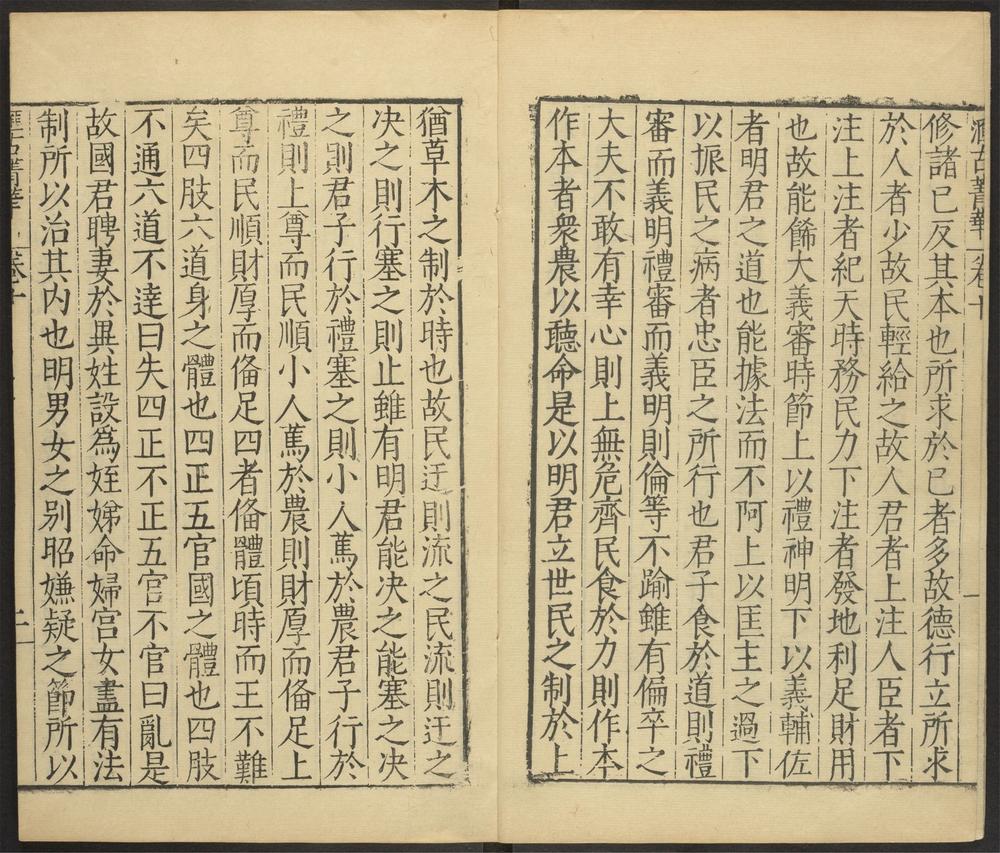 脩諸己反其本也所求於己者多故德行立所求
於人者少故民輕給之故人君者上注人臣者下
注上注者紀天時務民力下注者發地利足財用
也故能餙大義審時節上以禮神明下以義輔佐
者明君之道也能據法而不阿上以匡主之過下
以振民之病者忠臣之所行也君子食於道則禮
審而義明禮審而義明則倫等不踰雖有偏卒之
大夫不敢有幸心則上無危齊民食於力則作本
作本者衆農以聽命是以明君立世民之制於上
猶草木之制於時也故民迂則流之民流則迂之
决之則行塞之則止雖有明君能决之能塞之决
之則君子行於禮塞之則小人篤於農君子行於
禮則上尊而民順小人篤於農則財厚而俻足上
尊而民順財厚而俻足四者俻體頃時而王不難
矣四肢六道身之體也四正五官國之體也四肢
不通六道不達曰失四正不正五官不官曰亂是
故國君聘妻於異姓設爲姪娣命婦宫女盡有法
制所以治其内也明男女之别昭嫌疑之節所以
卷十
二